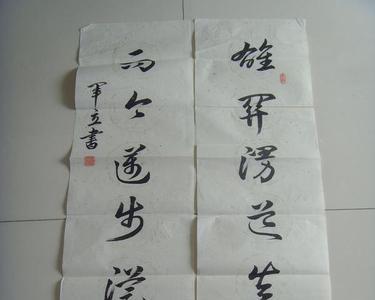 雄關漫道真
而今邁步從
軍立書